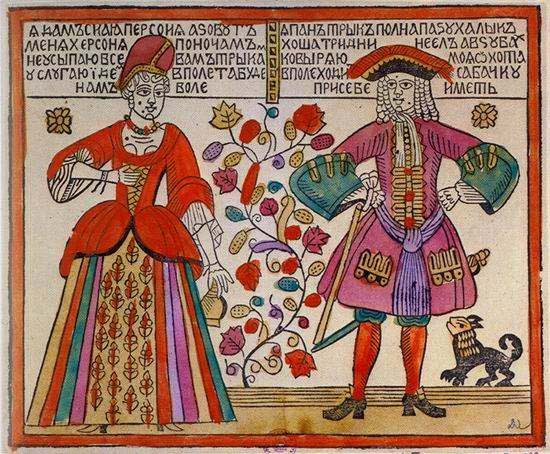 ЯДАМЪСКАЯПЕРСОНЯАЅОВУТЪ
МЕНЯХЕРСОНЯ ПОНОЧАМЪ
НЕУСЫПАЮВСЕ ВАМЪТРЫКА
УСЛУГАЮІДЕ ВПОЛЕТАБУДЕ
НАЛЪ ВОЛЕ
ЯПАНТРЫКЪПОЛНАПАЅУХАЛЫКЪ
ХОШАТРИДНИ НЕЕЛЪАВЅУБАХ
КОВЫРЯЮ МОЯОХОТА
ВПОЛЕХОДИ САБАЧКУ
ПРИСЕБЕ ИМЕТЬ